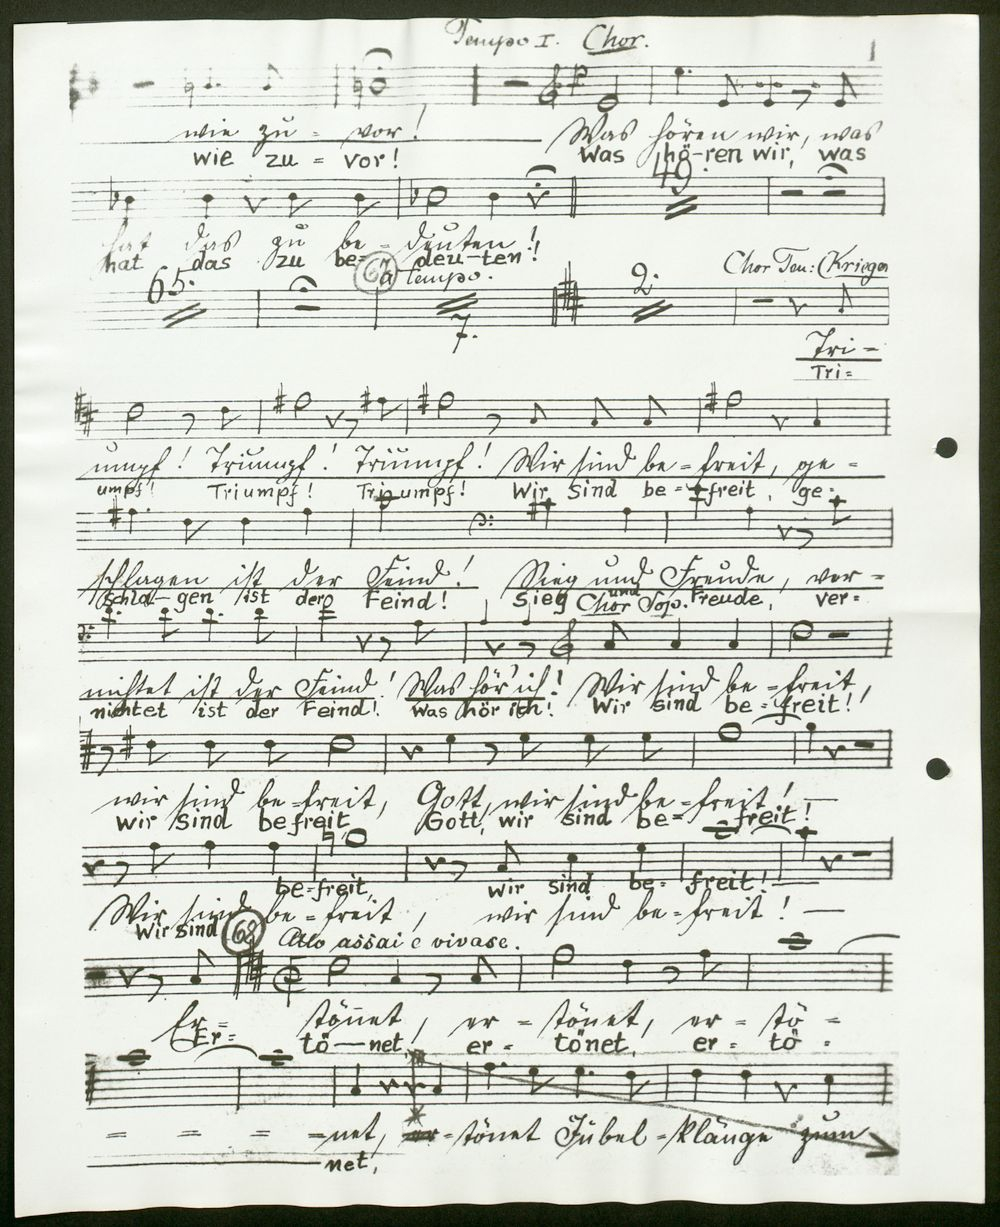 Tempo I. Chor.
wie zu = vor! Was hören wir, was
wie zu = vor! Was hö-ren wir, was
49.
hat das zu be = deuten!
hat das zu be= deu-ten!
67 a Tempo. Chor Ten: (Krieger
65. 2.
7.
Tri =
Tri=
umpf! Triumpf! Triumpf! Wir sind be = freit, ge =
umpf! Triumpf! Triumpf! Wir sind be = freit, ge=
schlagen ist der Feind! Sieg und Freude, ver =
schla-gen ist der Feind! Sieg und Freude, ver=
Chor Sop.
nichtet ist der Feind! Was hör' ich! Wir sind be = freit,
nichtet ist der Feind! Was hör ich! Wir sind be = freit!
wir sind be = freit, Gott, wir sind be = freit! —
wir sind befreit Gott, wir sind be= freit!
be=freit, wir sind be= freit!
Wir sind be = freit, wir sind be = freit! —
Wir sind 68 Allo assai e vivase.
Er= tönet, er = tönet, er = tö =
Er= tö—net, er = tönet, er = tö =
= = = = net, er = tönet Jubel = klänge zum
net,